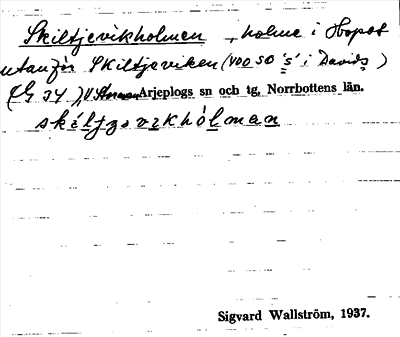 Skiltjevikholmen, holme i Hopot
utanför Skiltjeviken (VDO SO 's' i Davids)
(G 34), Arjeplogs sn och tg, Norrbottens län.
skiltjevikhólman
Sigvard Wallström, 1937.